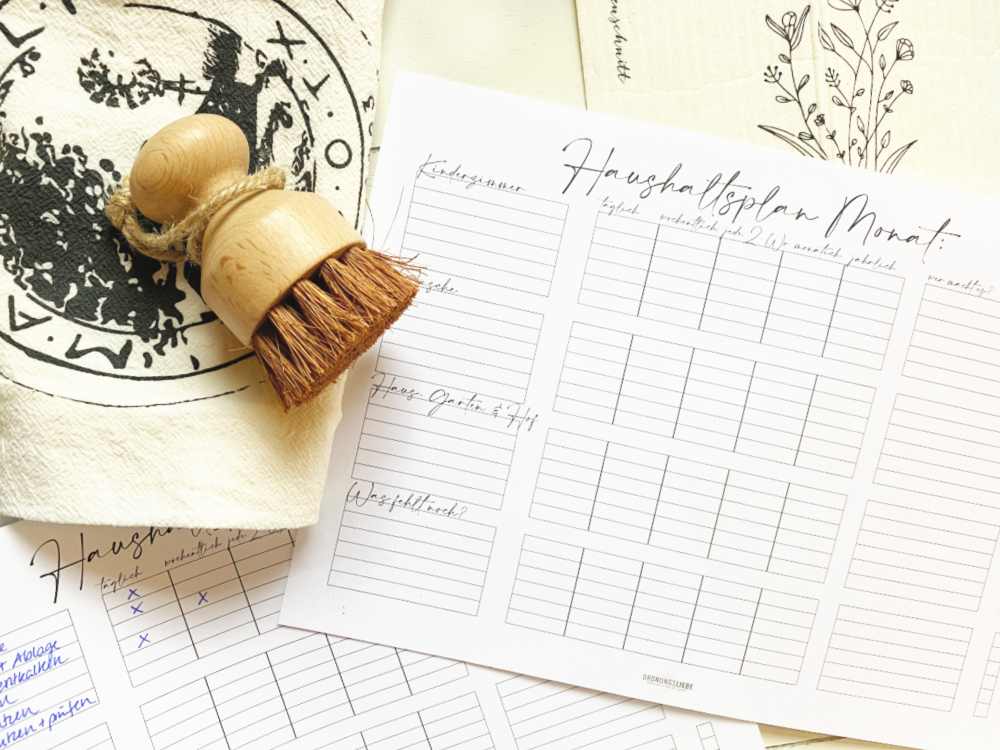 enschnitt
Haushaltsplan Monat:
Kinderzimmer
täglich wöchentlich jede 2 Wo monatlich jährlich
wer macht's?
äsche
Haus, Garten & Hof
Was fehlt noch?
ORDNUNGSLIEBE
Haush
täglich wöchentlich jede 2
x
x x
x
e
r Ablage
entkalken
n
utzen
utzen + prüfen